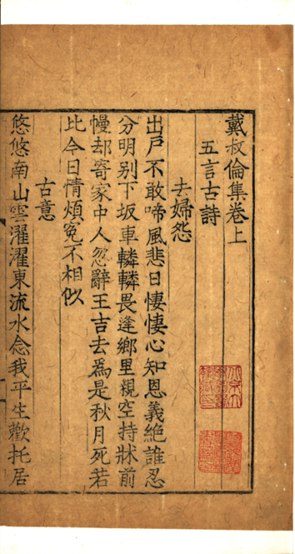 戴叔倫集卷上
五言古詩
去婦怨
出戶不敢啼風悲日悽悽心知恩義絕誰忍
分明别下坂車轔轔畏逢鄉里親空持牀前
幔却寄家中人忽辭王吉去爲是秋月死若
比今日情煩寃不相似
古意
悠悠南山雲濯濯東流水念我平生歡托居